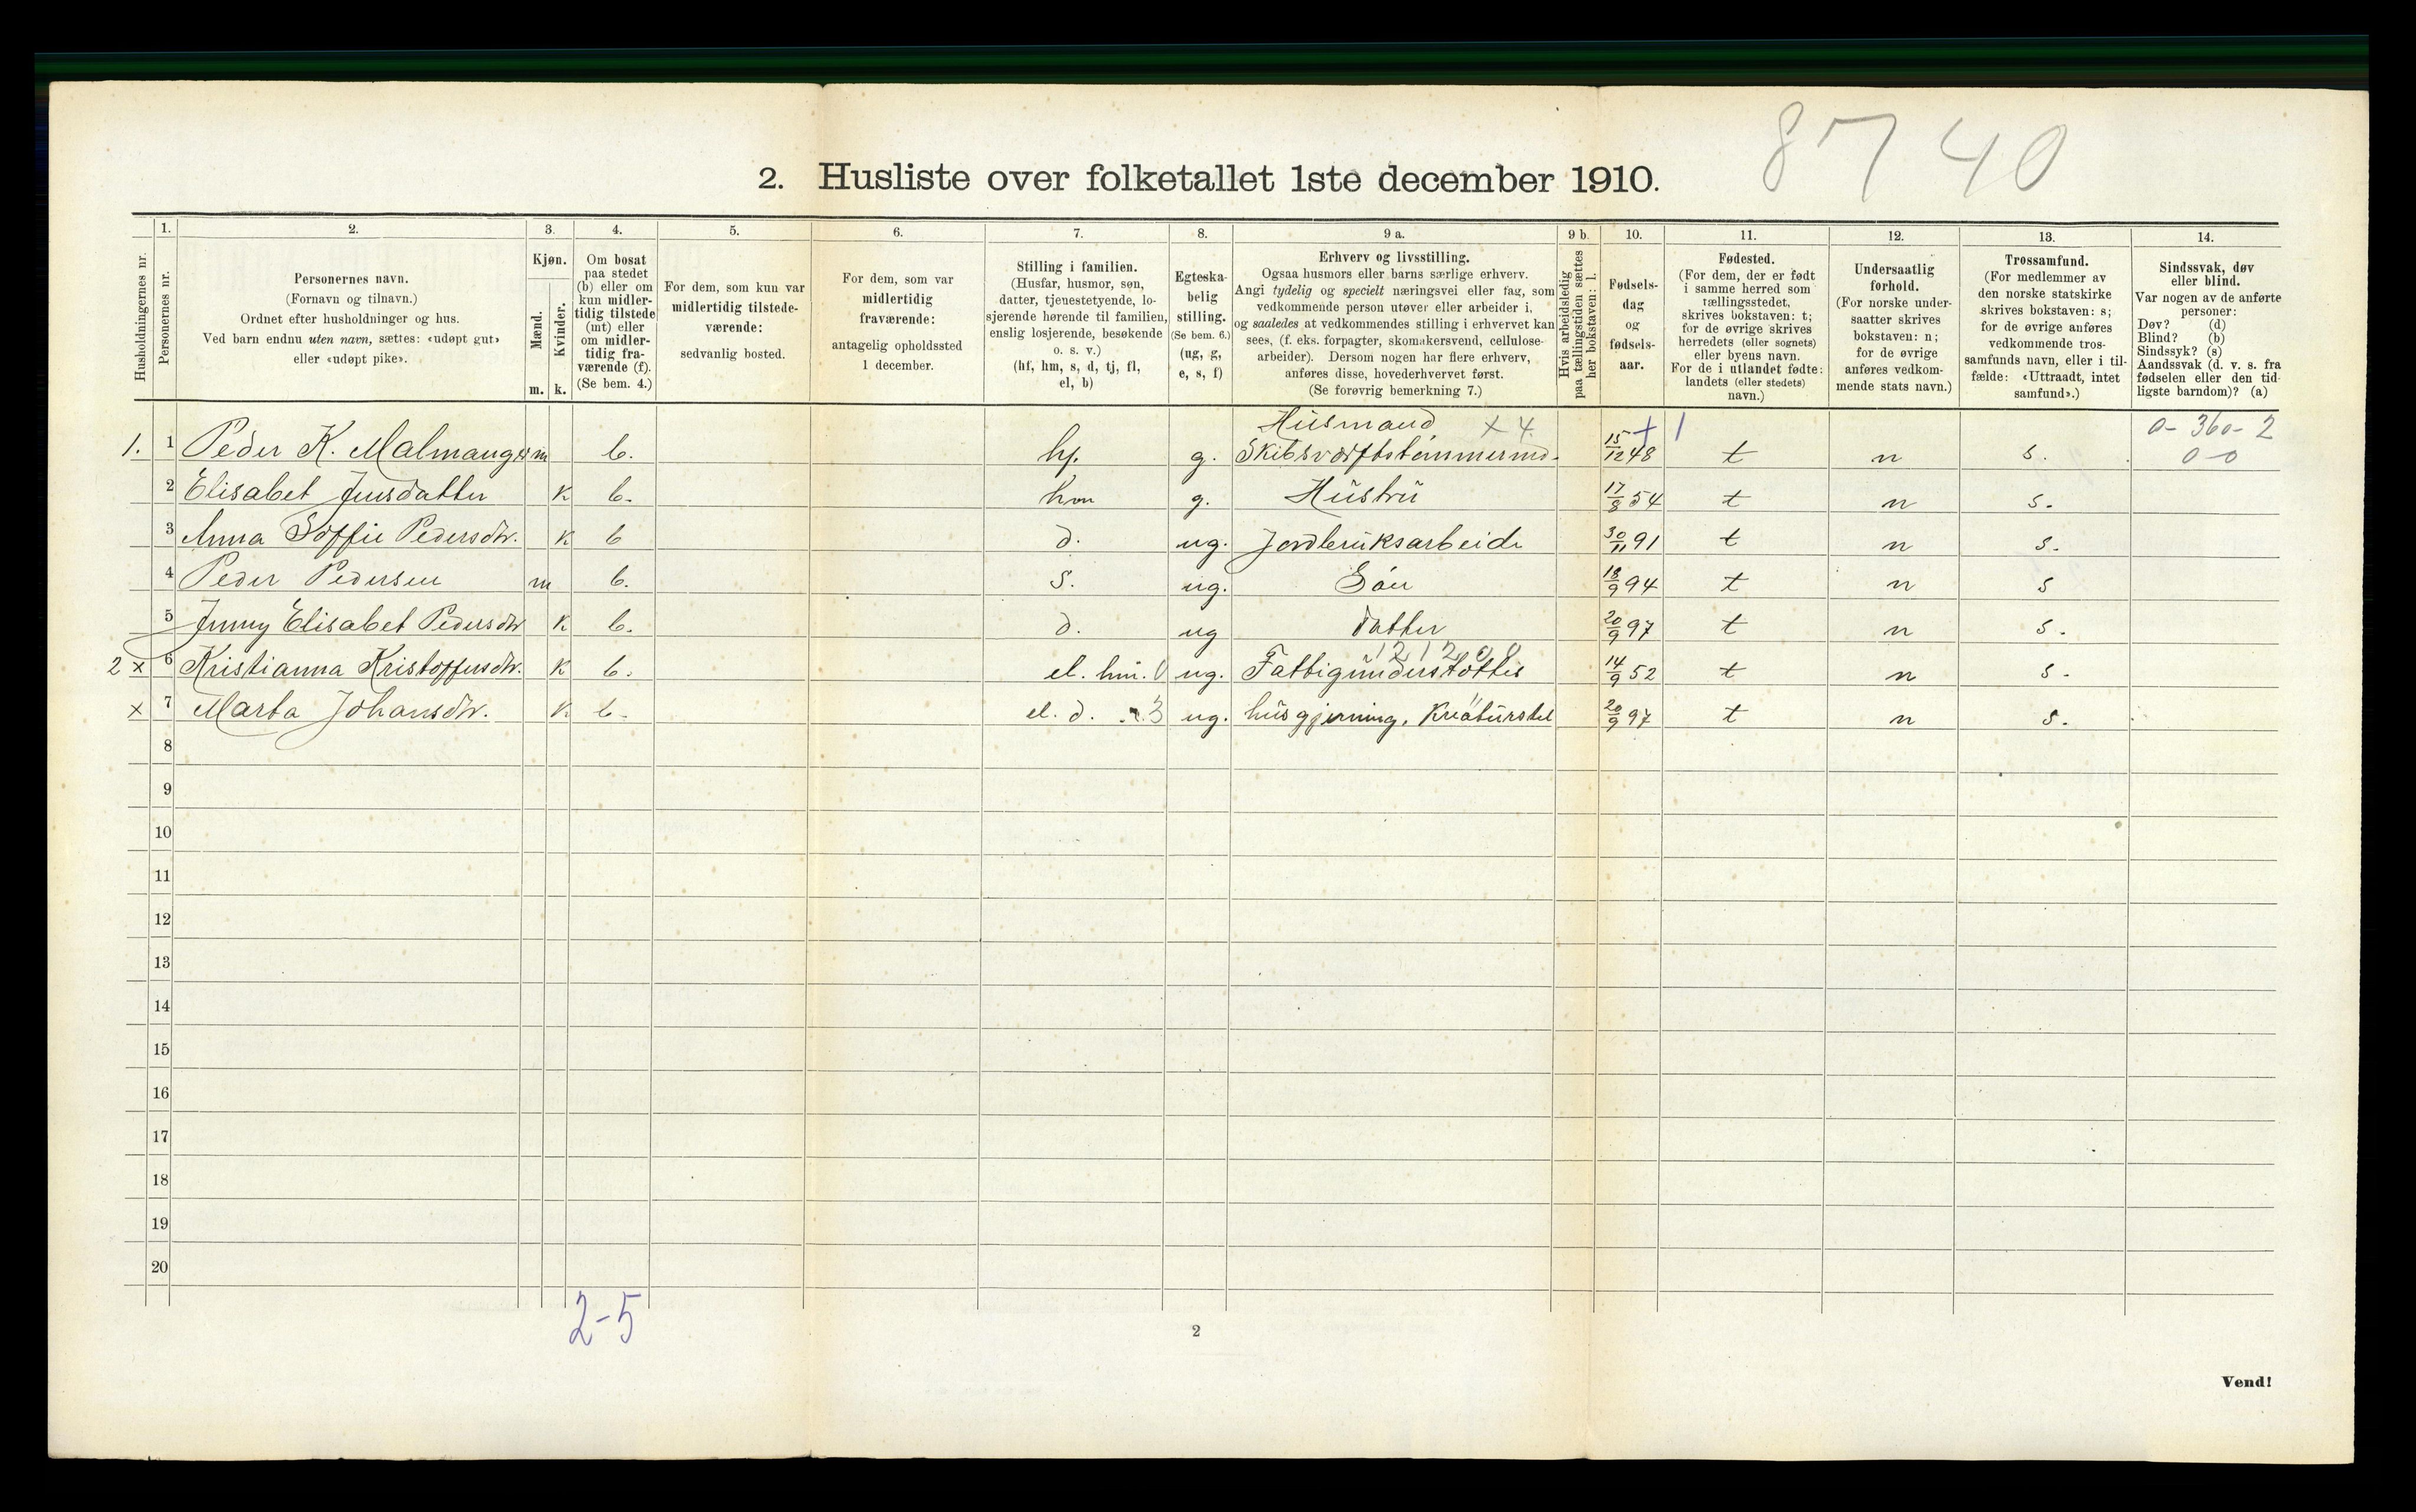 8740
2. Husliste over folketallet 1ste december 1910.
Husholdningernes nr.
1.
Personernes nr.
2.
Personernes navn.
(Fornavn og tilnavn.)
Ordnet efter husholdninger og hus.
Ved barn endnu uten navn, sættes: «udøpt gut»
eller «udøpt pike».
3.
Kjøn.
Mænd.
m.
Kvinder.
k.
4.
Om bosat
paa stedet
(b) eller om
kun midler-
tidig tilstede
(mt) eller
om midler-
tidig fra-
værende (f).
(Se bem. 4.)
5.
For dem, som kun var
midlertidig tilstede-
værende:
sedvanlig bosted.
6.
For dem, som var
midlertidig
fraværende:
antagelig opholdssted
1 december.
7.
Stilling i familien.
(Husfar, husmor, søn,
datter, tjenestetyende, lo-
sjerende hørende til familien,
enslig losjerende, besøkende
o. s. v.)
(hf, hm, s, d, tj, fl,
el, b)
8.
Egteska-
belig
stilling.
(Se bem. 6.)
(ug, g,
e, s, f)
9 a.
Erhverv og livsstilling.
Ogsaa husmors eller barns særlige erhverv.
Angi tydelig og specielt næringsvei eller fag, som
vedkommende person utøver eller arbeider i,
og saaledes at vedkommendes stilling i erhvervet kan
sees, (f. eks. forpagter, skomakersvend, cellulose-
arbeider). Dersom nogen har flere erhverv,
anføres disse, hovederhvervet først.
(Se forøvrig bemerkning 7.)
9 b.
Hvis arbeidsledig
paa tællingstiden sættes
her bokstaven: l.
10.
Fødsels-
dag
og
fødsels-
aar.
11.
Fødested.
(For dem, der er født
i samme herred som
tællingsstedet,
skrives bokstaven: t;
for de øvrige skrives
herredets (eller sognets)
eller byens navn.
For de i utlandet fødte:
landets (eller stedets)
navn.)
12.
Undersaatlig
forhold.
(For norske under-
saatter skrives
bokstaven: n;
for de øvrige
anføres vedkom-
mende stats navn.)
13.
Trossamfund.
(For medlemmer av
den norske statskirke
skrives bokstaven: s;
for de øvrige anføres
vedkommende tros-
samfunds navn, eller i til-
fælde: «Uttraadt, intet
samfund».)
14.
Sindssvak, døv
eller blind.
Var nogen av de anførte
personer:
Døv? (d)
Blind? (b)
Sindssyk? (s)
Aandssvak (d. v. s. fra
fødselen eller den tid-
ligste barndom)? (a)
Husmand x 4. + 1 0-360-2
1. 1 Peder K. Malmanger m b. hf. g. Skibsværftstømmermd. 15/12 48 t n s. 0-0
2 Elisabet Jensdatter k b. hm g. Hustru 17/8 54 t n s.
3 Anna Soffie Pedersdtr. k b d. ug. Jordbruksarbeide 30/11 91 t n s.
4 Peder Pedersen m b. s. ug. Søn 18/9 94 t n s
5 Jenny Elisabet Pedersdtr k b. d. ug Datter 20/9 97 t n s.
2 x 6 Kristianna Kristoffersdtr. k b. el. hm. 0 ug. Fattigunderstøttes 14/9 52 t n s.
x 7 Marta Johansdtr. k b. el. d. 3 ug. husgjerning, Kreaturstel 20/9 97 t n s.
8
9
10
11
12
13
14
15
16
17
18
19
20
2-5
2
Vend!